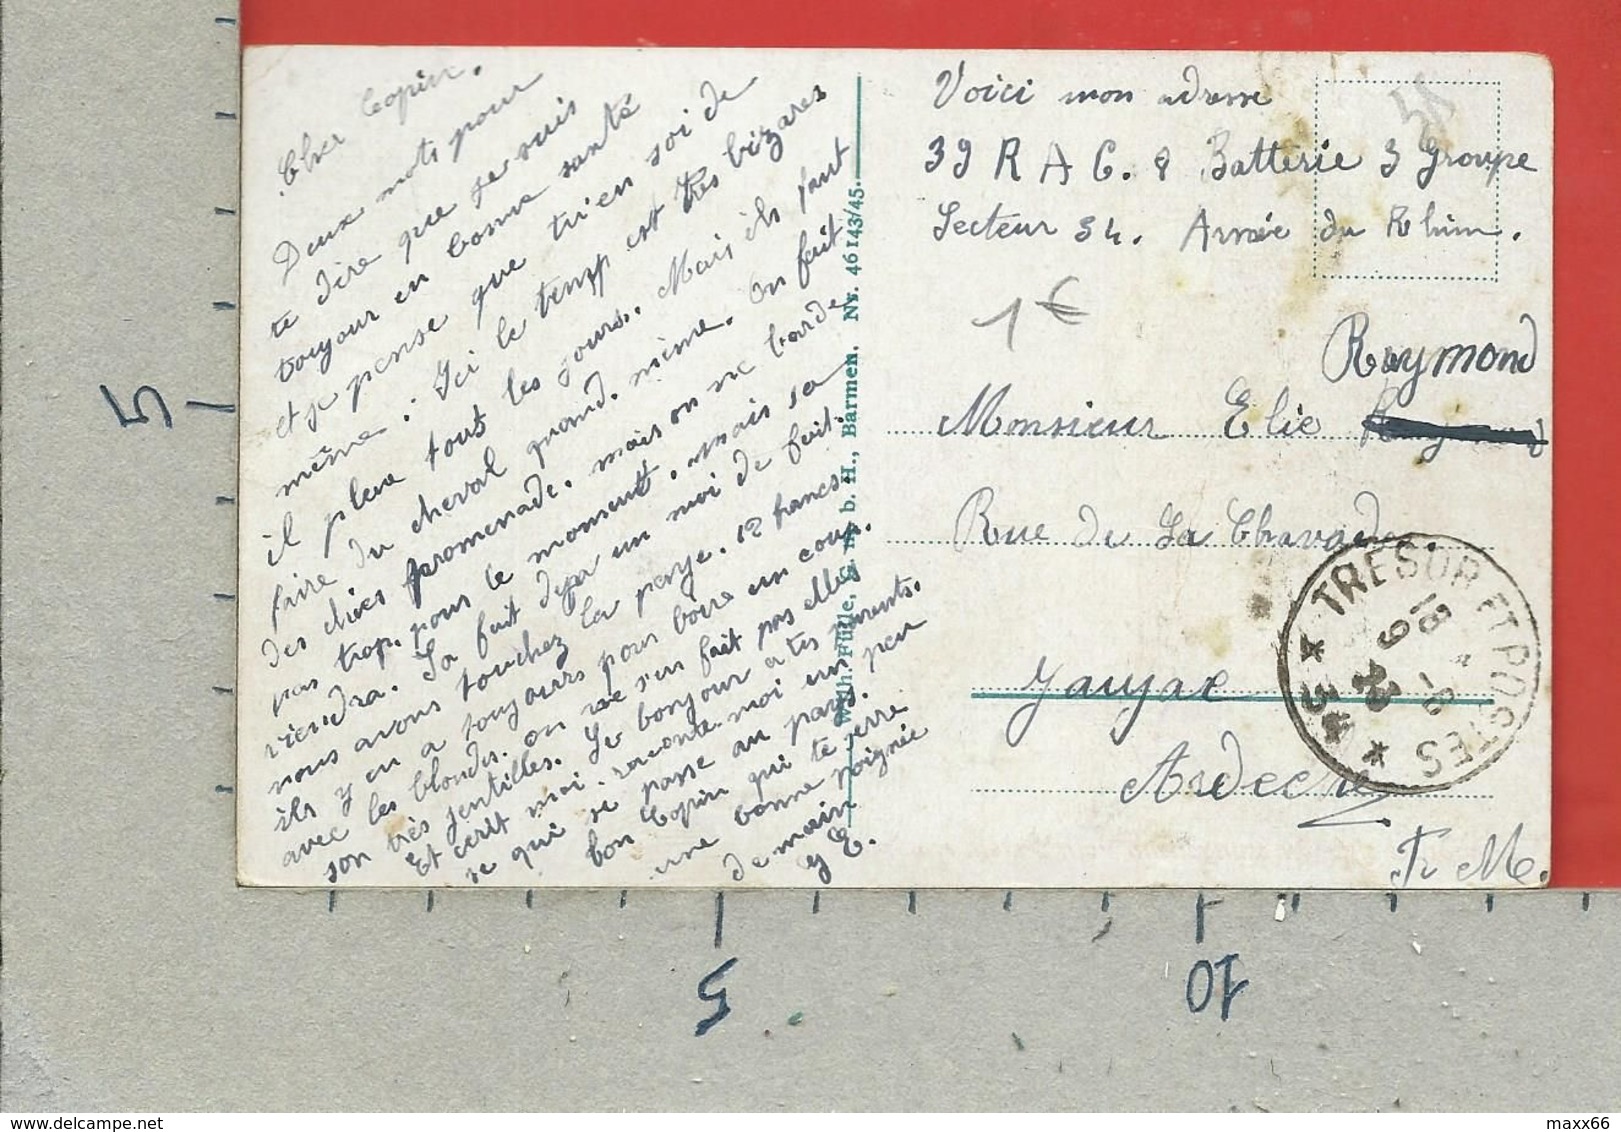 Cher Copin.
Deux mots pour
te dire que je suis
toujour en bonne santé
et je pense que tu en soi de
même. Ici le temp est très bizares
il pleux tout les jours. Mais ils faut
faire du cheval quand même. On fait
des chics promenade. mais on ne barde
pas trop. pour le moment. mais sa
viendra. Sa fait deja un moi de fait.
nous avons touchez la paye. 12 francs.
ils y en a toujours pour boire un coup.
avec les blondes. on ne s'en fait pas elles
son très jentilles. Le bonjour a tes parents.
Et ecrit moi. raconte moi un peu
se qui se passe au pays.
bon Copin qui te serre
une bonne poignée
de main
y E.
Wilh. Fülle, G. m. b. H., Barmen. Nr. 46143/45.
Voici mon adresse
39 R A C. 8 Batterie 3 Groupe
Secteur 34. Armée du Rhin.
1 €
Raymond
Monsieur Elie
Rue de La Chavade
Jaujac
Ardèche
F M.
TRESOR ET POSTES
5
5
10
maxx66